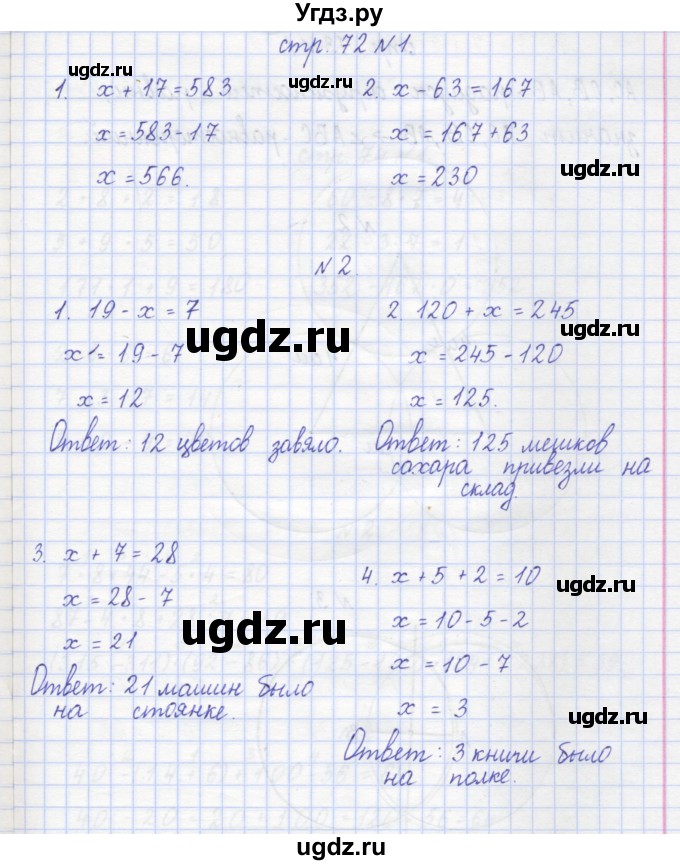 Угдз.ру
стр. 72 №1.
1. x + 17 = 583
x = 583 - 17
x = 566.
2. x - 63 = 167
x = 167 + 63
x = 230
№ 2.
1. 19 - x = 7
x = 19 - 7
x = 12
Ответ: 12 цветов завяло.
2. 120 + x = 245
x = 245 - 120
x = 125.
Ответ: 125 мешков
сахара привезли на
склад.
3. x + 7 = 28
x = 28 - 7
x = 21
Ответ: 21 машин было
на стоянке.
4. x + 5 + 2 = 10
x = 10 - 5 - 2
x = 10 - 7
x = 3
Ответ: 3 книги было
на полке.
ugdz.ru
ugdz.ru
ugdz.ru
ugdz.ru
ugdz.ru
ugdz.ru
ugdz.ru
ugdz.ru
ugdz.ru
ugdz.ru
ugdz.ru